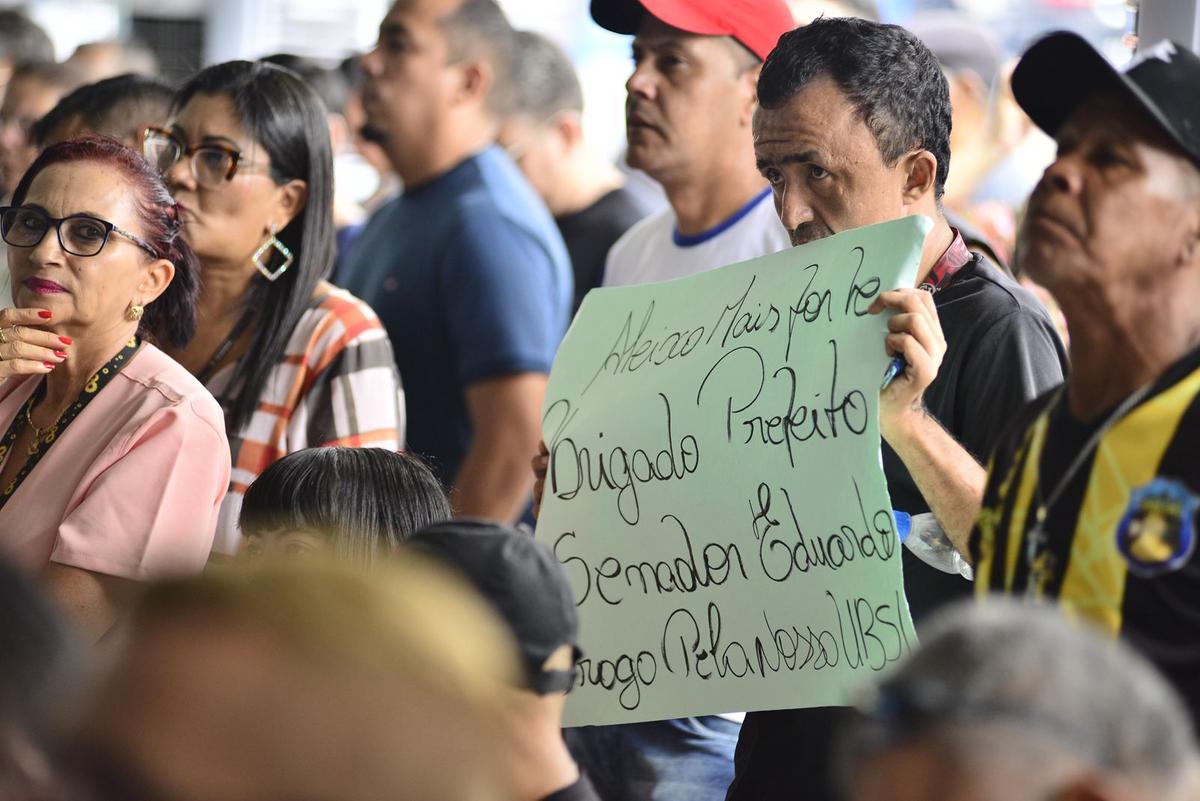 Aleixo Mais forte
Obrigado Prefeito
Senador Eduardo
Pela Nosso UBS